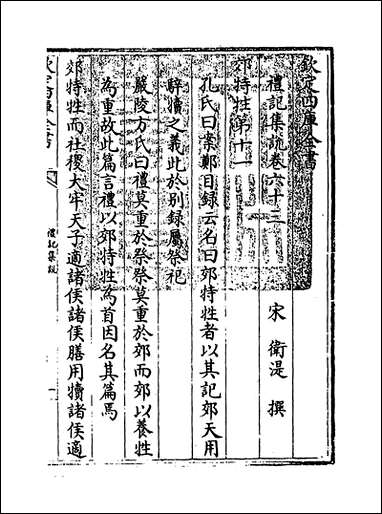 欽定四庫全書
禮記集說卷六十三
宋 衛湜 撰
郊特牲第十一
孔氏曰案鄭目録云名曰郊特牲者以其記郊天用
騂犢之義此於別録屬祭祀
嚴陵方氏曰禮莫重於祭祭莫重於郊而郊以養牲
為重故此篇言禮以郊特牲為首因名其篇焉
郊特牲而社稷大牢天子適諸侯諸侯膳用犢諸侯適
欽定四庫全書
禮記集說
一